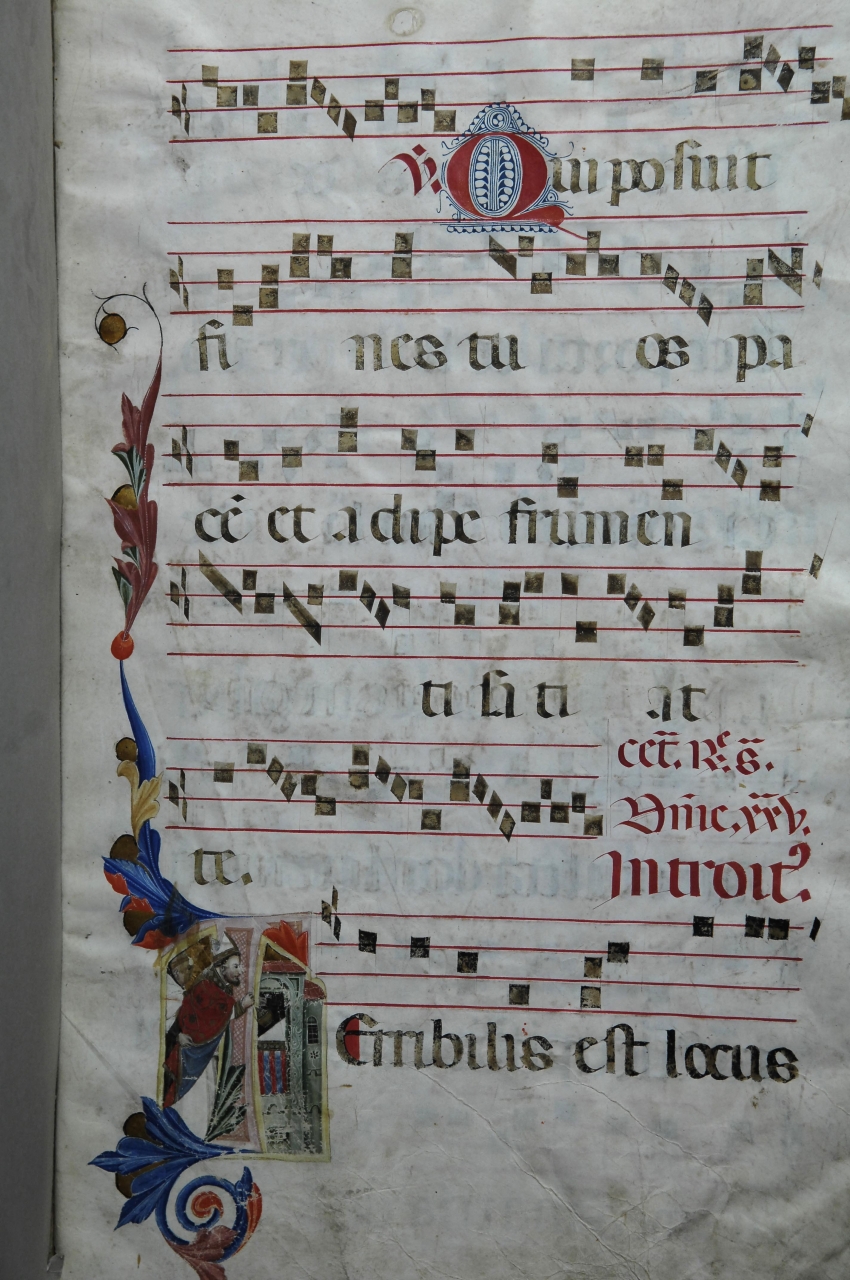 ℣. Qui posuit
fi nes tu os pa
cē et adipe frumen
ti sa ti at
cet. ℟. s̄.
te. Dn̄ic. xxv.
Introit⁹.
Erribilis est locus